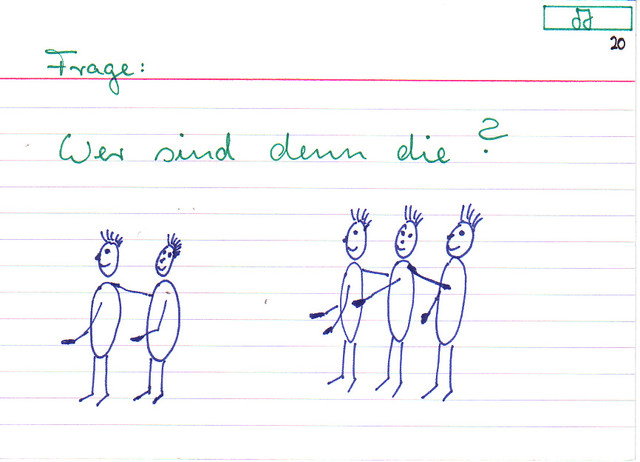 20
Frage:
Wer sind denn die?